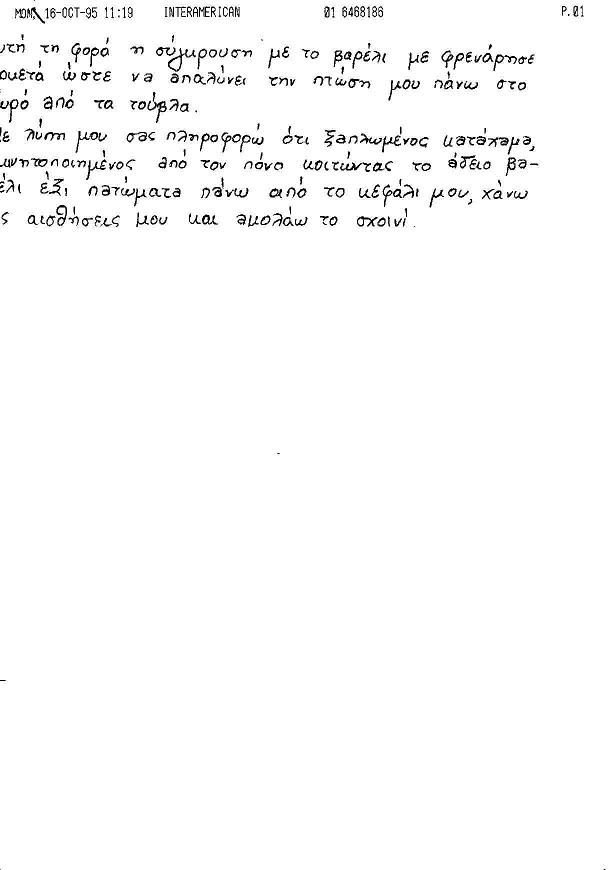 MON 16-OCT-95 11:19 INTERAMERICAN 01 6468186 P.01
υτή τη φορά η σύγκρουση με το βαρέλι με φρενάρησε
ρκετά ώστε να απαλύνει την πτώση μου πάνω στο
υρό από τα τούβλα.
ε λύπη μου σας πληροφορώ ότι ξαπλωμένος κατάχαμα,
ινητοποιημένος από τον πόνο κοιτώντας το άδειο βα-
έλι έξι πατώματα πάνω από το κεφάλι μου, χάνω
ς αισθήσεις μου και αμολάω το σχοινί.